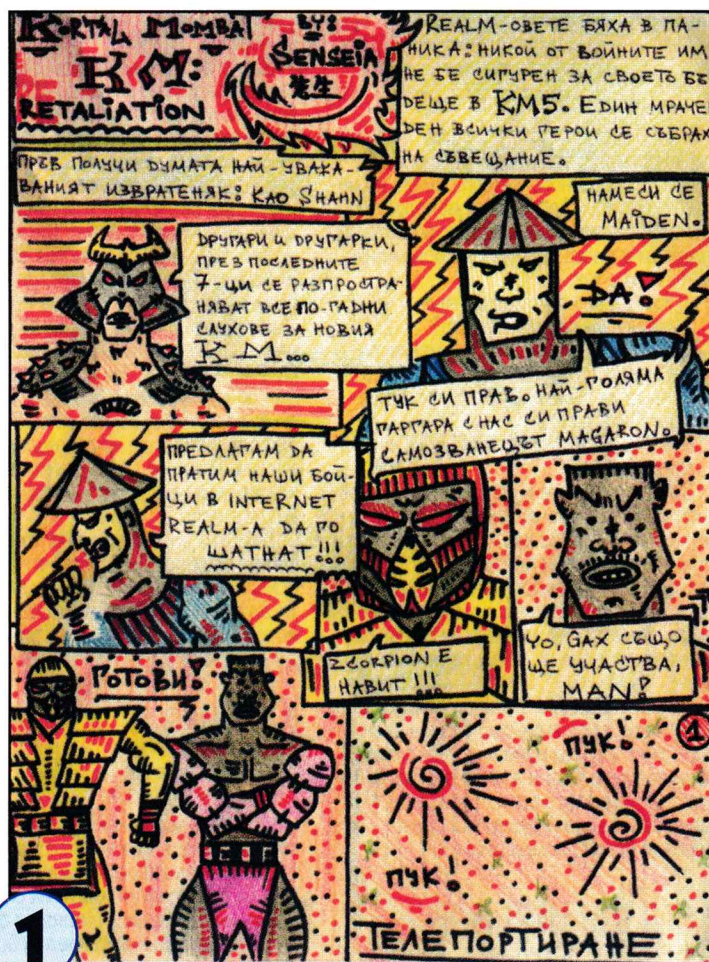 KORTAL MOMBAT
KM:
RETALIATION
BY:
SENSEIA
先生
REALM-ОВЕТЕ БЯХА В ПА-
НИКА: НИКОЙ ОТ ВОЙНИТЕ ИМ
НЕ БЕ СИГУРЕН ЗА СВОЕТО БЪ
ДЕЩЕ В KM5. ЕДИН МРАЧЕ
ДЕН ВСИЧКИ ГЕРОИ СЕ СЪБРАХ
НА СЪВЕЩАНИЕ.
ПРЪВ ПОЛУЧИ ДУМАТА НАЙ-УВАЖА-
ВАНИЯТ ИЗВРАТЕНЯК: KAO SHAHN
ДРУГАРИ И ДРУГАРКИ,
ПРЕЗ ПОСЛЕДНИТЕ
7-ЦИ СЕ РАЗПРОСТРА-
НЯВАТ ВСЕ ПО-ГАДНИ
СЛУХОВЕ ЗА НОВИЯ
KM...
НАМЕСИ СЕ
MAIDEN.
ДА!
ТУК СИ ПРАВ. НАЙ-ГОЛЯМА
ГАРГАРА С НАС СИ ПРАВИ
САМОЗВАНЕЦЪТ MAGARON.
ПРЕДЛАГАМ ДА
ПРАТИМ НАШИ БОЙ-
ЦИ В INTERNET
REALM-A ДА ГО
ШАТНАТ!!!
ZCORPION Е
НАВИТ!!!
YO, GAX СЪЩО
ЩЕ УЧАСТВА,
MAN!
ГОТОВИ!
1
ПУК!
ПУК!
ТЕЛЕПОРТИРАНЕ.
1